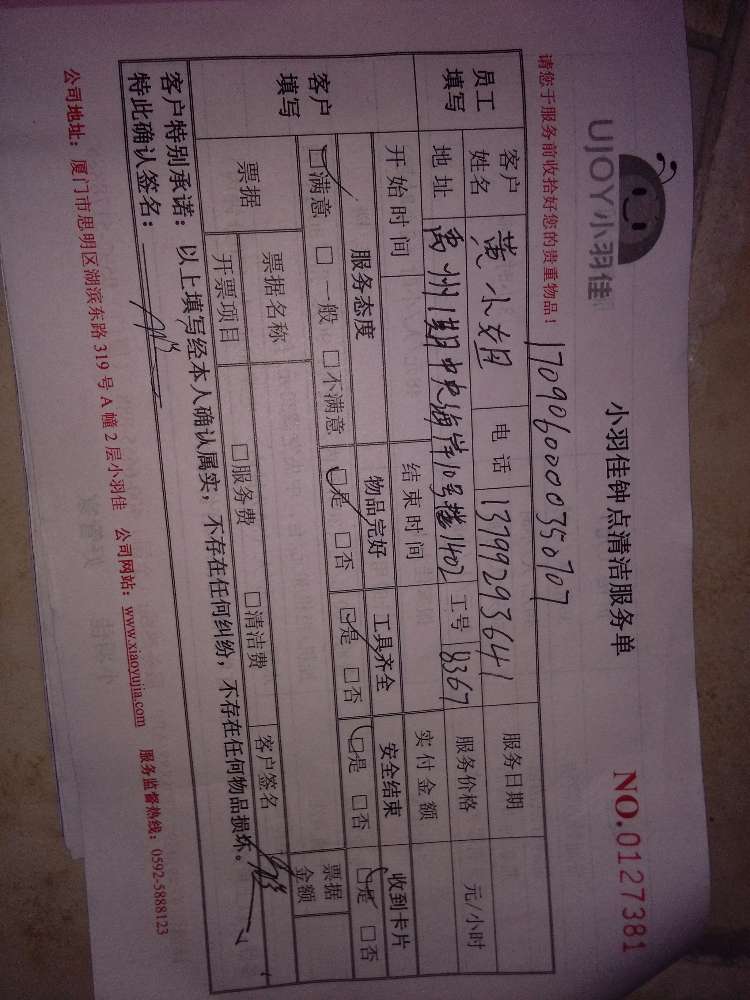 UJOY小羽佳
小羽佳钟点清洁服务单
NO.0127381
请您于服务前收拾好您的贵重物品！
170906000350707
员工填写 客户姓名 黄小姐 电话 13799293641 服务日期
地址 禹州1期中央海岸10号楼1402 工号 8367 服务价格 元/小时
开始时间 结束时间 实付金额
客户填写 服务态度 物品完好 工具齐全 安全结束 收到卡片
□满意 □一般 □不满意 □是 □否 □是 □否 □是 □否 □是 □否
票据 票据名称 票据金额
开票项目 □服务费 □清洁费 客户签名
客户特别承诺：以上填写经本人确认属实，不存在任何纠纷，不存在任何物品损坏。
特此确认签名：
公司地址：厦门市思明区湖滨东路319号A幢2层小羽佳 公司网站：www.xiaoyujia.com 服务监督热线：0592-5888123